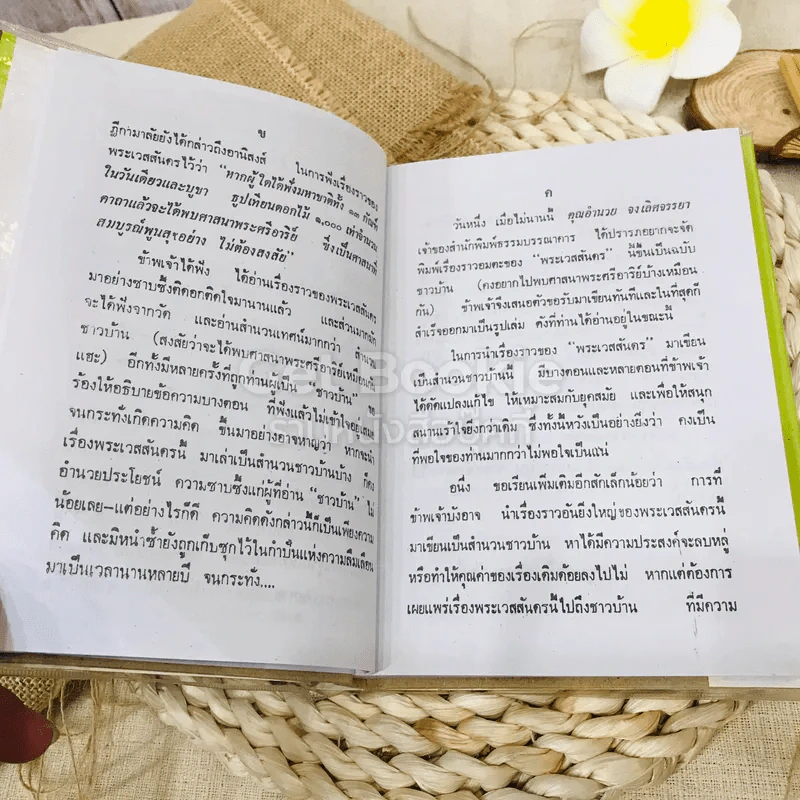 ข
ฎีกามาลัยยังได้กล่าวถึงอานิสงส์ ในการฟังเรื่องราวของ
พระเวสสันดรไว้ว่า "หากผู้ใดได้ฟังมหาชาติทั้ง ๑๓ กัณฑ์
ในวันเดียวและบูชา ธูปเทียนดอกไม้ ๑,๐๐๐ เท่าจำนวน
คาถาแล้วจะได้พบศาสนาพระศรีอาริย์ ซึ่งเป็นศาสนาที่
สมบูรณ์พูนสุขอย่าง ไม่ต้องสงสัย"
ข้าพเจ้าได้ฟัง ได้อ่านเรื่องราวของพระเวสสันดร
มาอย่างซาบซึ้งติดอกติดใจมานานแล้ว และส่วนมากมัก
จะได้ฟังจากวัด และอ่านสำนวนเทศน์มากกว่า สำนวน
ชาวบ้าน (สงสัยว่าจะได้พบศาสนาพระศรีอาริย์เหมือนกัน
แฮะ) อีกทั้งมีหลายครั้งที่ถูกท่านผู้เป็น "ชาวบ้าน" ขอ
ร้องให้อธิบายข้อความบางตอน ที่ฟังแล้วไม่เข้าใจอยู่เสมอ
จนกระทั่งเกิดความคิด ขึ้นมาอย่างอาจหาญว่า หากจะนำ
เรื่องพระเวสสันดรนี้ มาเล่าเป็นสำนวนชาวบ้านบ้าง ก็คง
อำนวยประโยชน์ ความซาบซึ้งแก่ผู้ที่อ่าน "ชาวบ้าน" ไม่
น้อยเลย—แต่อย่างไรก็ดี ความคิดดังกล่าวนี้ก็เป็นเพียงความ
คิด และมิหนำซ้ำยังถูกเก็บซุกไว้ในกำปั่นแห่งความลืมเลือน
มาเป็นเวลานานหลายปี จนกระทั่ง....
ค
วันหนึ่ง เมื่อไม่นานนี้ คุณอำนวย จงเลิศจรรยา
เจ้าของสำนักพิมพ์ธรรมบรรณาคาร ได้ปรารภอยากจะจัด
พิมพ์เรื่องราวอมตะของ "พระเวสสันดร" นี้ขึ้นเป็นฉบับ
ชาวบ้าน (คงอยากไปพบศาสนาพระศรีอาริย์บ้างเหมือน
กัน) ข้าพเจ้าจึงเสนอตัวขอรับมาเขียนทันทีและในที่สุดก็
สำเร็จออกมาเป็นรูปเล่ม ดังที่ท่านได้อ่านอยู่ในขณะนี้
ในการนำเรื่องราวของ "พระเวสสันดร" มาเขียน
เป็นสำนวนชาวบ้านนี้ มีบางตอนและหลายตอนที่ข้าพเจ้า
ได้ดัดแปลงแก้ไข ให้เหมาะสมกับยุคสมัย และเพื่อให้สนุก
สนานเร้าใจยิ่งกว่าเดิม ซึ่งทั้งนี้หวังเป็นอย่างยิ่งว่า คงเป็น
ที่พอใจของท่านมากกว่าไม่พอใจเป็นแน่
อนึ่ง ขอเรียนเพิ่มเติมอีกสักเล็กน้อยว่า การที่
ข้าพเจ้าบังอาจ นำเรื่องราวอันยิ่งใหญ่ของพระเวสสันดรนี้
มาเขียนเป็นสำนวนชาวบ้าน หาได้มีความประสงค์จะลบหลู่
หรือทำให้คุณค่าของเรื่องเดิมด้อยลงไปไม่ หากแต่ต้องการ
เผยแพร่เรื่องพระเวสสันดรนี้ไปถึงชาวบ้าน ที่มีความ
Get Bookie
ร้านหนังสือบุ๊คกี้